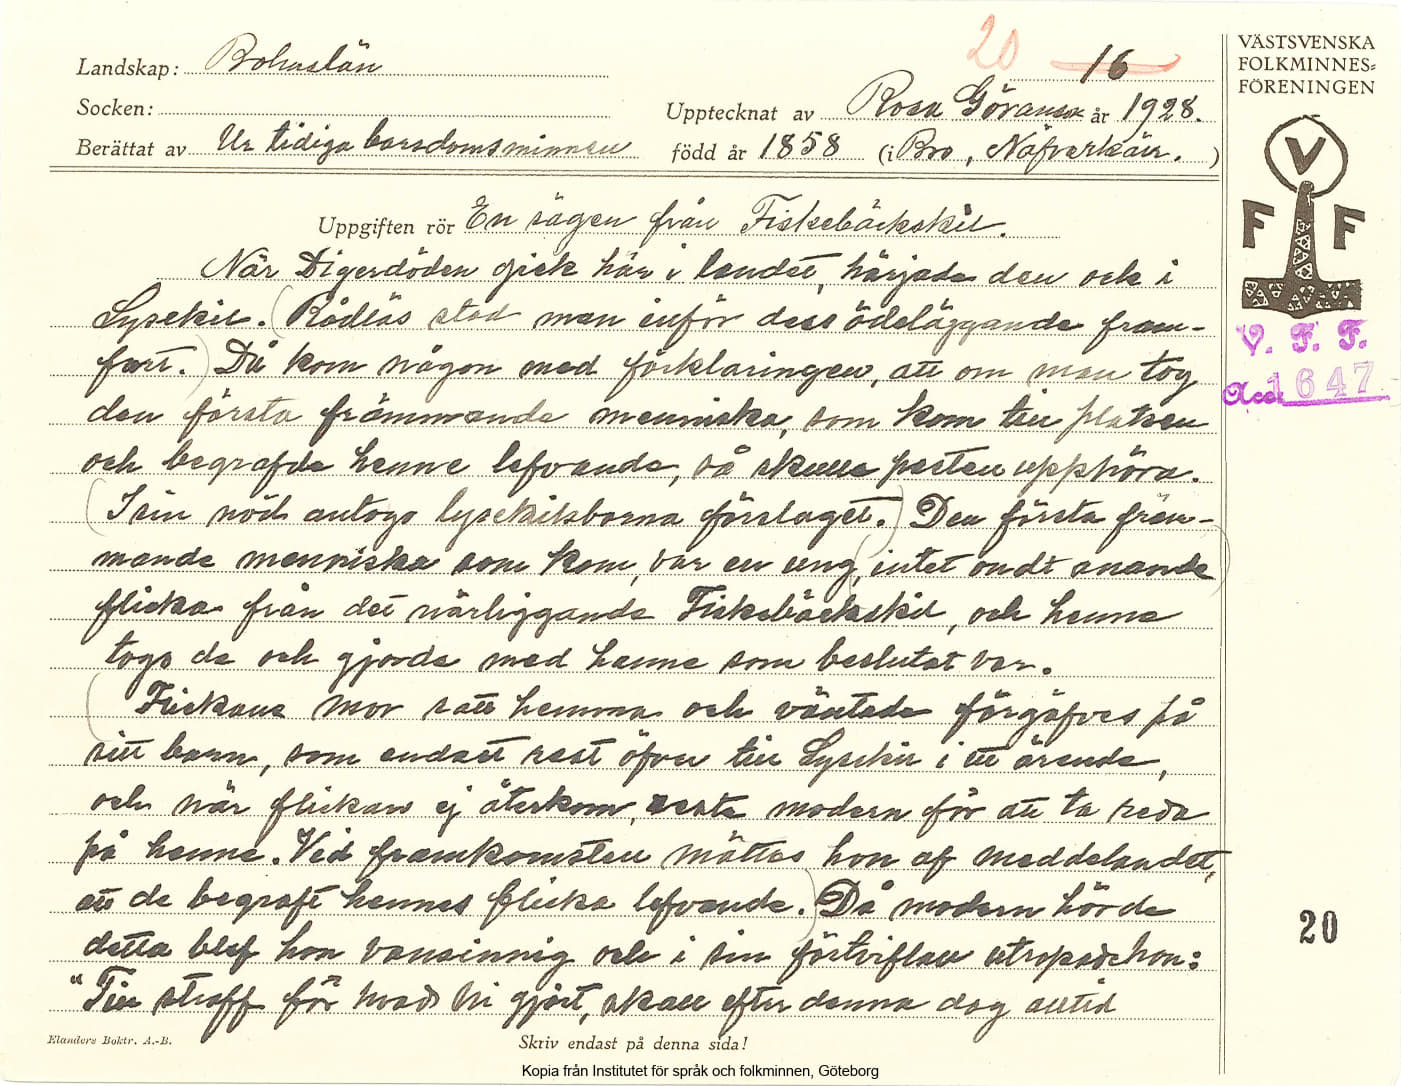 Landskap: Bohuslän
20 16
Socken:
Upptecknat av Rosa Göransson år 1928.
Berättat av Ur tidiga barndomsminnen född år 1858 (i Bro, Näfverkärr.)
VÄSTSVENSKA
FOLKMINNES-
FÖRENINGEN
V
F F
V. F. F.
Acc. 1647
Uppgiften rör En sägen från Fiskebäckskil.
När Digerdöden gick här i landet, härjade den ock i
Lysekil. (Rådlös stod man inför dess ödeläggande fram-
fart.) Då kom någon med förklaringen, att om man tog
den första främmande menniska, som kom till platsen
och begrafde henne lefvande, så skulle pesten upphöra.
(I sin nöd antogo lysekilsborna förslaget.) Den första främ-
mande menniska som kom, var en ung, (intet ondt anande)
flicka från det närliggande Fiskebäckskil, och henne
togo de och gjorde med henne som beslutat var.
(Flickans mor satt hemma och väntade förgäfves på
sitt barn, som endast rest öfver till Lysekil i ett ärende,
och när flickan ej återkom, reste modern för att ta reda
på henne. Vid framkomsten möttes hon af meddelandet,
att de begraft hennes flicka lefvande.) Då modern hörde
detta blef hon vansinnig och i sin förtviflan utropade hon:
"Till straff för hvad Ni gjort, skall efter denna dag alltid
20
Elanders Boktr. A.-B.
Skriv endast på denna sida!
Kopia från Institutet för språk och folkminnen, Göteborg